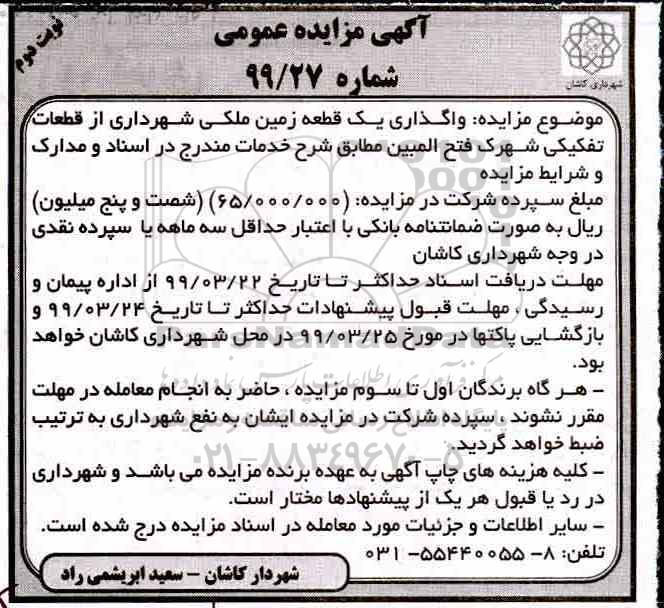 نوبت دوم
آگهی مزایده عمومی
شماره ۹۹/۲۷
شهرداری کاشان
موضوع مزایده: واگذاری یک قطعه زمین ملکی شهرداری از قطعات
تفکیکی شهرک فتح المبین مطابق شرح خدمات مندرج در اسناد و مدارک
و شرایط مزایده
مبلغ سپرده شرکت در مزایده: (۶۵/۰۰۰/۰۰۰) (شصت و پنج میلیون)
ریال به صورت ضمانتنامه بانکی با اعتبار حداقل سه ماهه یا سپرده نقدی
در وجه شهرداری کاشان
مهلت دریافت اسناد حداکثر تا تاریخ ۹۹/۰۳/۲۲ از اداره پیمان و
رسیدگی ، مهلت قبول پیشنهادات حداکثر تا تاریخ ۹۹/۰۳/۲۴ و
بازگشایی پاکتها در مورخ ۹۹/۰۳/۲۵ در محل شهرداری کاشان خواهد
بود.
- هر گاه برندگان اول تا سوم مزایده ، حاضر به انجام معامله در مهلت
مقرر نشوند ، سپرده شرکت در مزایده ایشان به نفع شهرداری به ترتیب
ضبط خواهد گردید.
- کلیه هزینه های چاپ آگهی به عهده برنده مزایده می باشد و شهرداری
در رد یا قبول هر یک از پیشنهادها مختار است.
- سایر اطلاعات و جزئیات مورد معامله در اسناد مزایده درج شده است.
تلفن: ۸- ۵۵۴۴۰۰۵۵- ۰۳۱
شهردار کاشان - سعید ابریشمی راد
ParsNamadData
۰۲۱-۸۸۳۴۹۶۷۰-۵